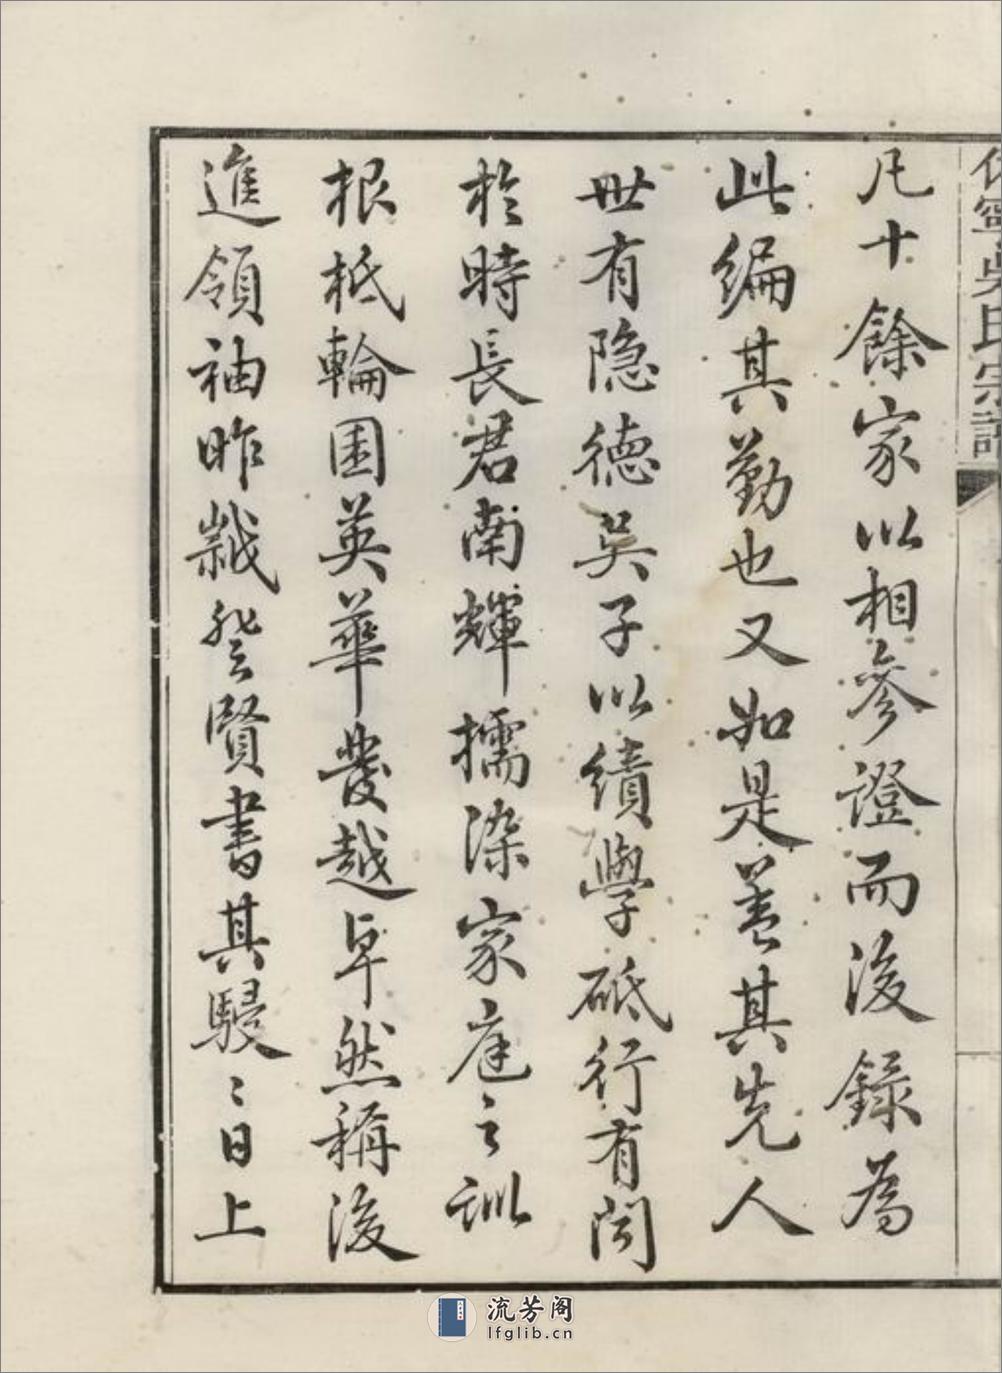 休寧吳氏宗譜
凡十餘家以相參證而後錄為
此編其勤也又如是蓋其先人
世有隐德吳子以績學砥行有聞
於時長君南輝擩染家庭之訓
根柢輪囷英華發越卓然稱後
進領袖昨歲登賢書其駸〻日上
流芳阁
lfglib.cn